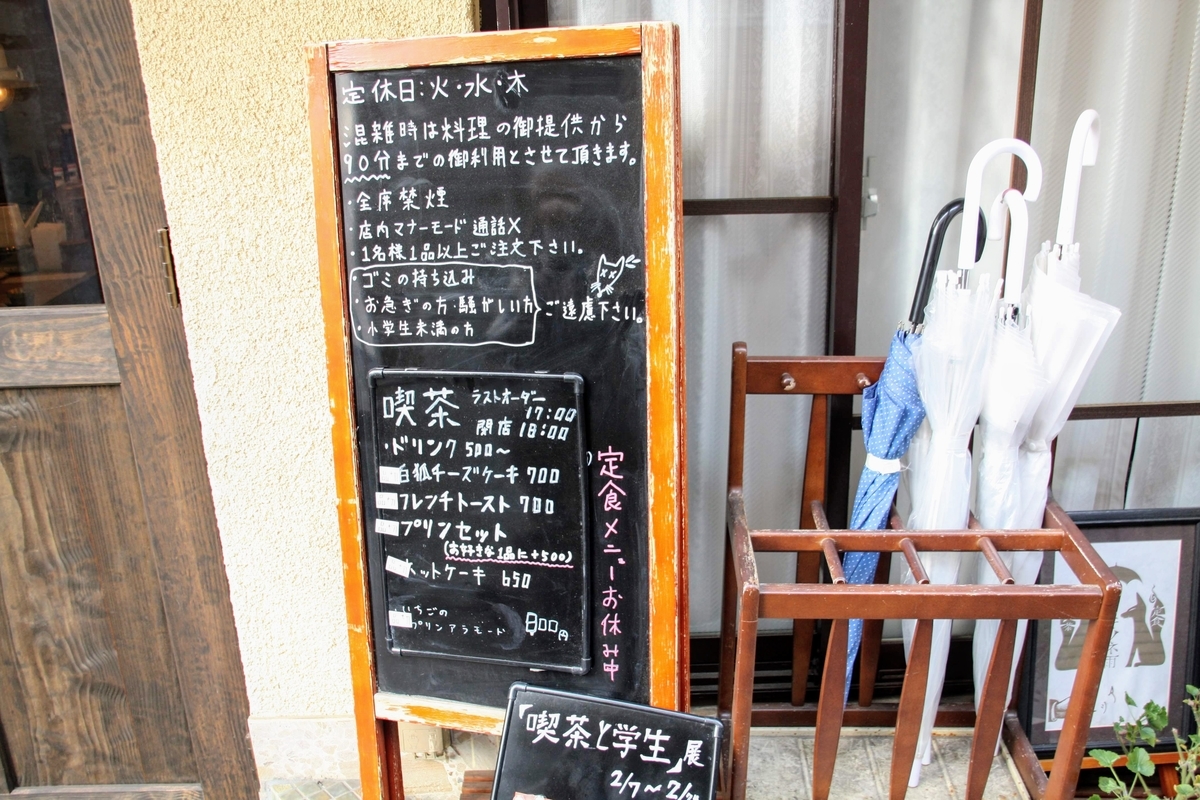 定休日:火・水・木
混雑時は料理の御提供から
90分までの御利用とさせて頂きます。
・全席禁煙
・店内マナーモード 通話X
・1名様1品以上ご注文下さい。
・ゴミの持ち込み
・お急ぎの方・騒がしい方
・小学生未満の方
ご遠慮下さい。
喫茶 ラストオーダー
17:00
閉店 18:00
・ドリンク 500〜
白狐チーズケーキ 700
フレンチトースト 700
プリンセット
(お好きな1品に+500)
ホットケーキ 650
いちごの
プリンアラモード 800円
定食メニューお休み中
「喫茶と学生」展
2/7〜2/